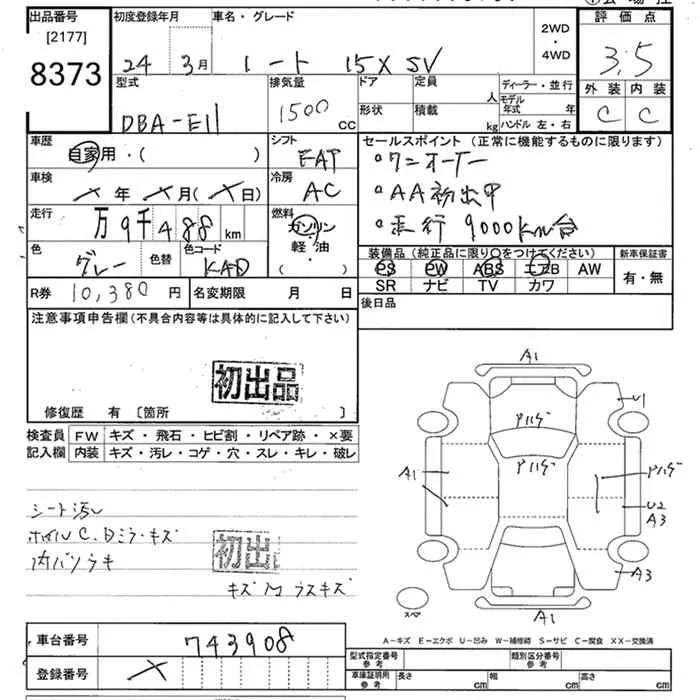 出品番号 初度登録年月 車名・グレード 評価点
[2177]
8373 24 3月 ノート 15X SV 2WD・4WD 3.5
型式 排気量 ドア 定員 人 ディーラー・並行 外装 内装
DBA-E11 1500 CC 形状 積載 kg モデル年式 年 ハンドル 左・右 C C
車歴 自家用・( ) シフト FAT セールスポイント (正常に機能するものに限ります)
車検 × 年 × 月 (× 日) 冷房 AC ・ワンオーナー
・AA初出申
走行 万 9千 488 km 燃料 ガソリン・軽油・( ) ・走行 9000km台
色 グレー 色替 色コード KAD 装備品 (純正品に限り○をつけてください) 新車保証書
PS PW ABS エアB AW 有・無
R券 10,380 円 名変期限 月 日 SR ナビ TV カワ
後日品
注意事項申告欄 (不具合内容等は具体的に記入して下さい)
初出品
修復歴 有 [箇所 ]
検査員 FW キズ・飛石・ヒビ割・リペア跡・×要
記入欄 内装 キズ・汚レ・コゲ・穴・スレ・キレ・破レ
シート汚レ
ホイルC、日ミラ・キズ
内バリキ
初出
A1
U1
Pハゲ
Pハゲ
A1
Pハゲ
U2
A3
A3
スペア
A1
A-キズ E-エクボ U-凹み W-補修跡 S-サビ C-腐食 XX-交換済
車台番号 743908
登録番号 ×
型式指定番号 参考 類別区分番号 参考
車庫証明用 参考 長さ cm 幅 cm 高さ cm